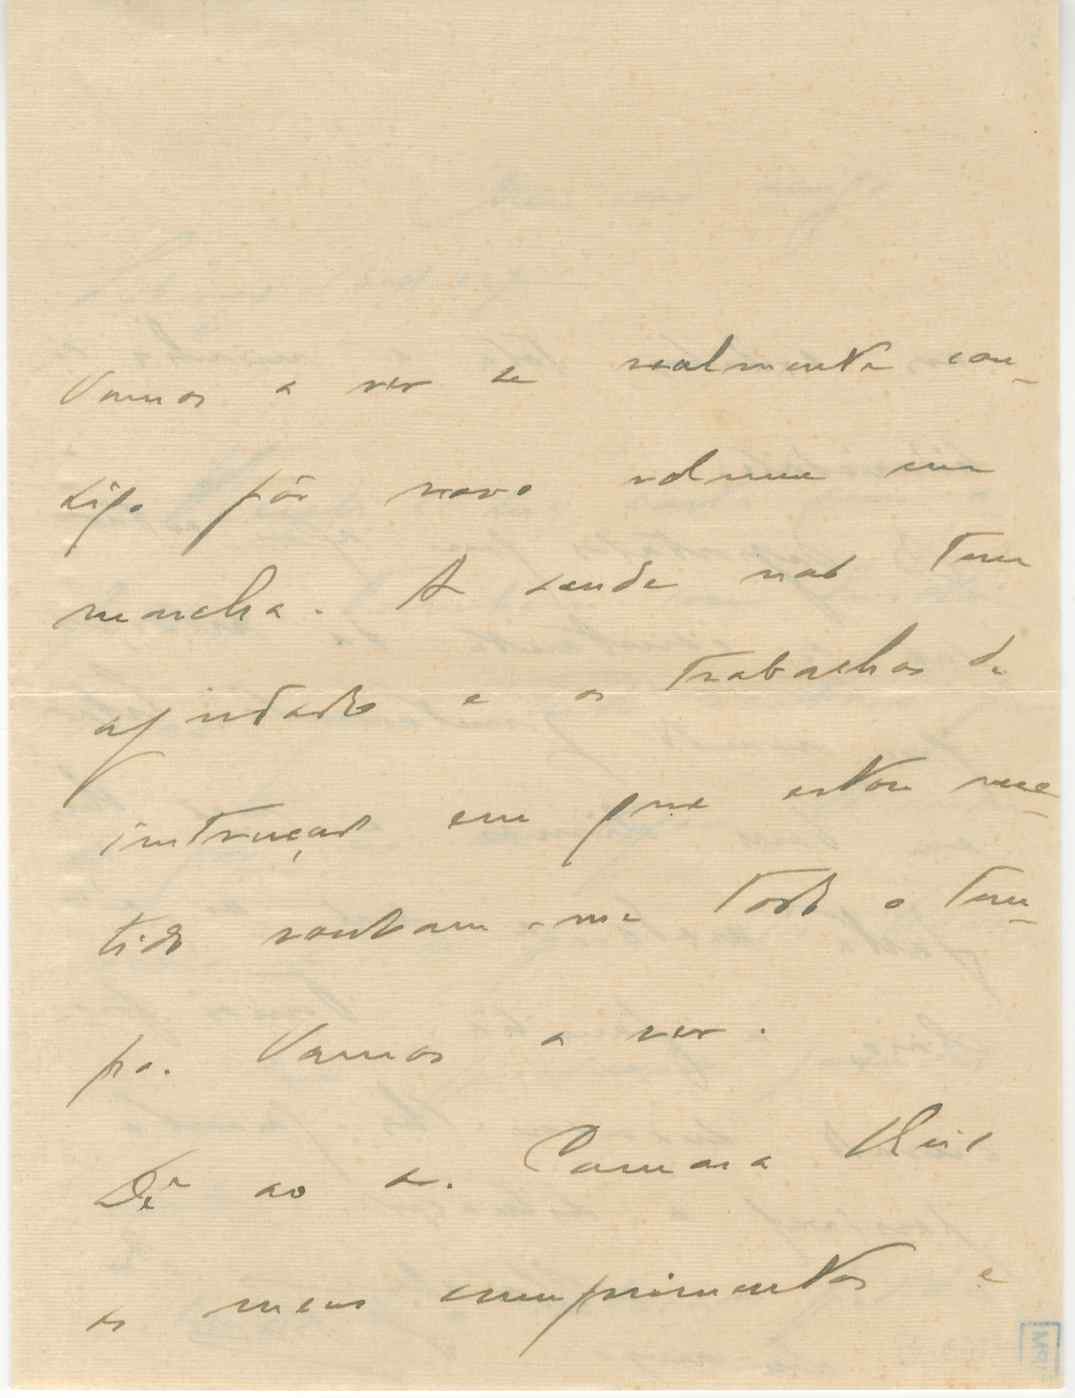 Vamos a ver se realmente con-
sigo pôr novo volume em
marcha. A saude não tem
ajudado e os trabalhos de
instrucção em que estou me-
tido roubam-me todo o tem-
po. Vamos a ver.
Dê ao sr. Camara Reis
os meus cumprimentos e